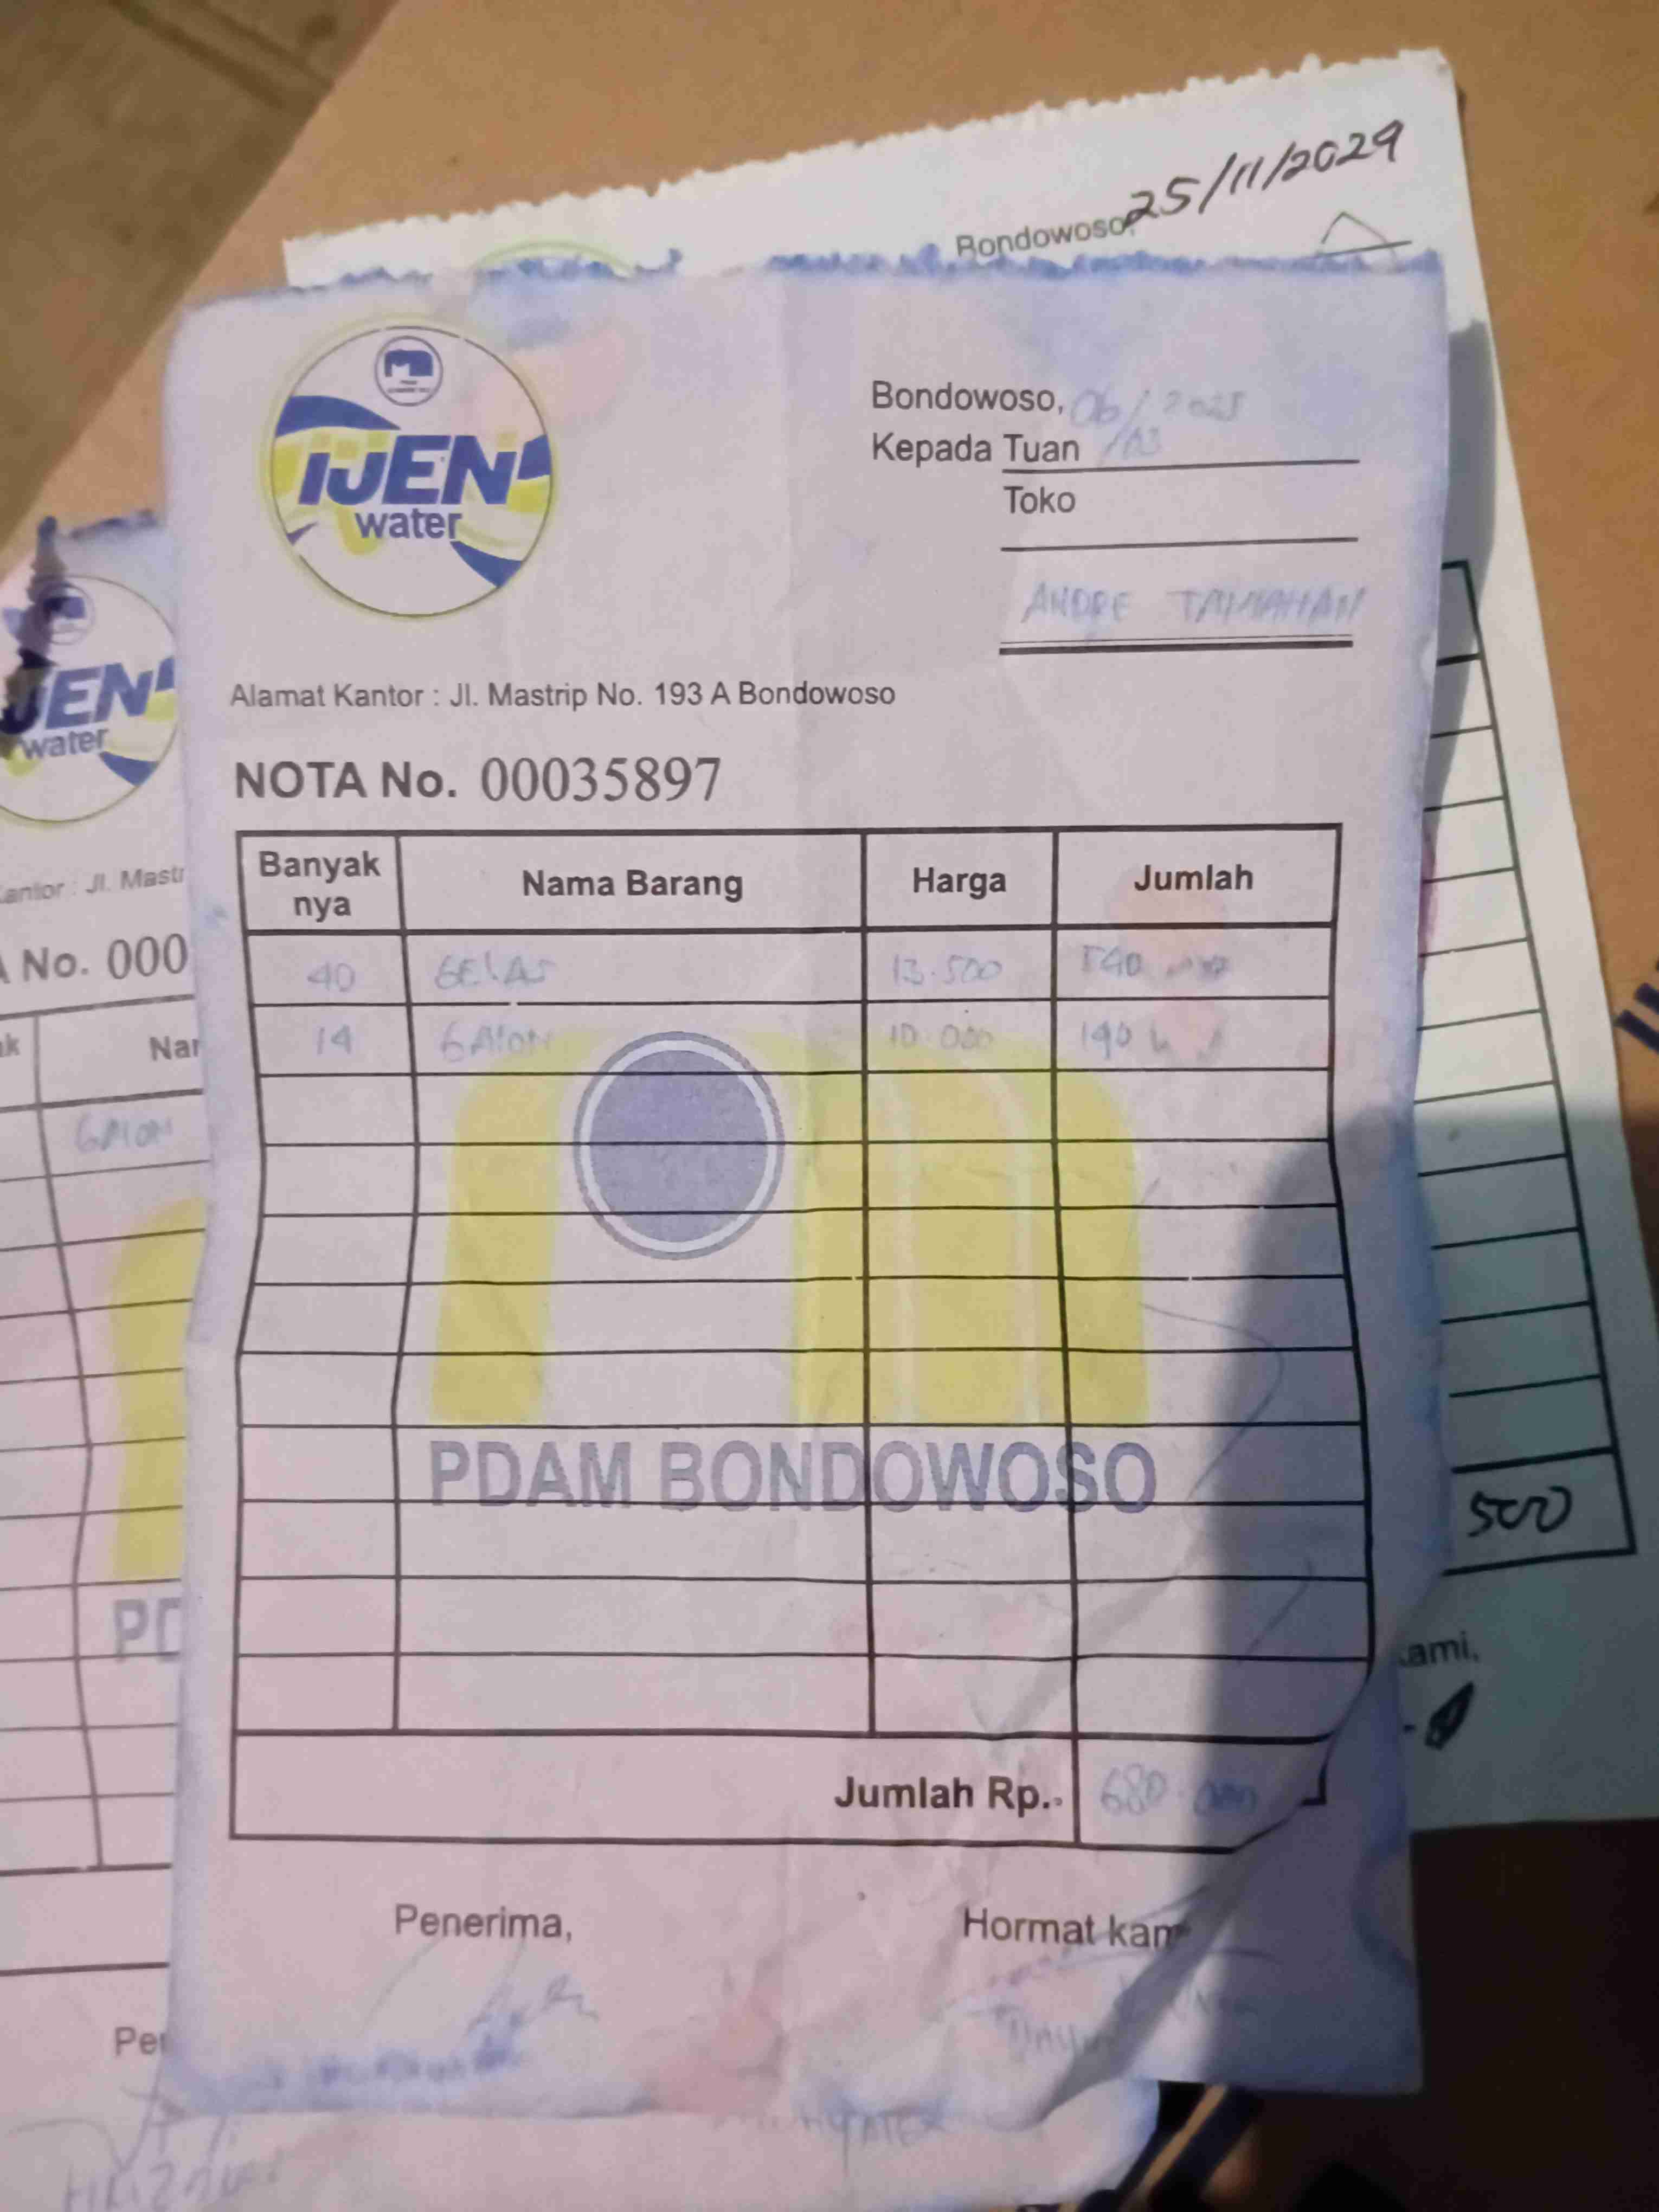 Bondowoso, 25/11/2029
IJEN
water
Bondowoso, 06/ 2025
Kepada Tuan /03
Toko
ANDRE TAMANAN
Alamat Kantor : Jl. Mastrip No. 193 A Bondowoso
NOTA No. 00035897
Banyak nya Nama Barang Harga Jumlah
40 GELAS 13.500 540
14 GALON 10.000 140
PDAM BONDOWOSO
Jumlah Rp. 680.000
Penerima, Hormat kam
JEN
water
Kantor : Jl. Mastr
No. 000
GALON
500